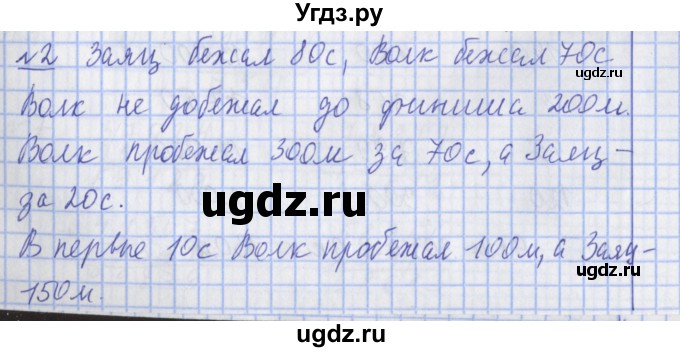 Угдз.ру
№2 Заяц бежал 80с, Волк бежал 70с
Волк не добежал до финиша 200м.
Волк пробежал 300м за 70с, а Заяц –
за 20с.
В первые 10с Волк пробежал 100м, а Заяц –
150м.
ugdz.ru
ugdz.ru
ugdz.ru
ugdz.ru
ugdz.ru
ugdz.ru